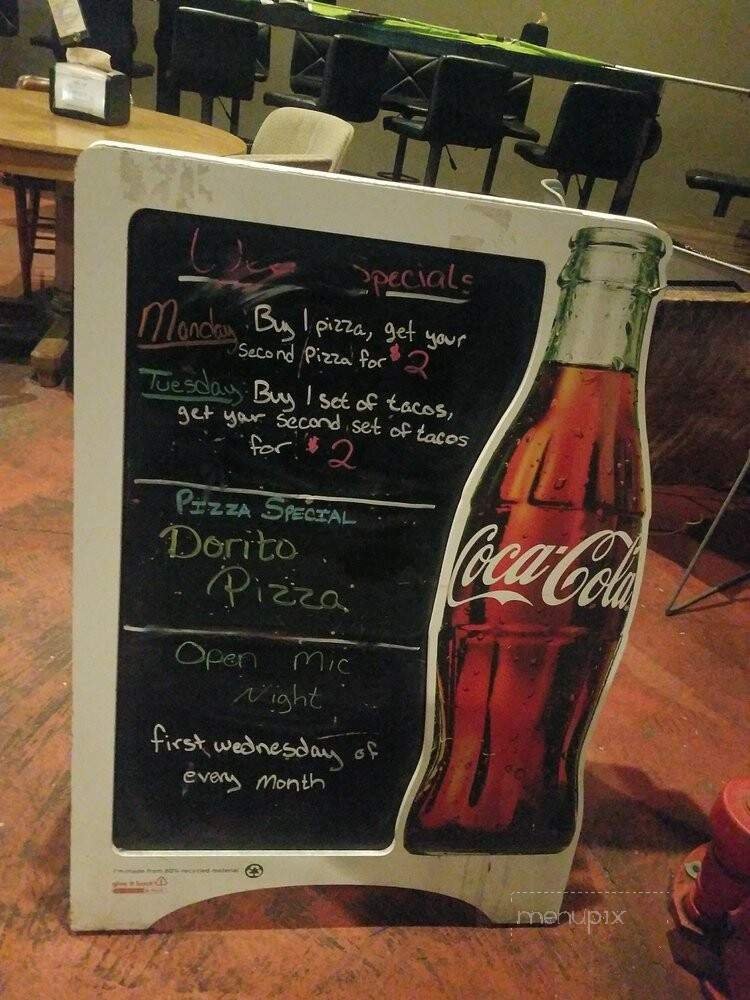 Specials
Monday: Buy 1 pizza, get your
second pizza for $2
Tuesday: Buy 1 set of tacos,
get your second set of tacos
for $2
PIZZA SPECIAL
Dorito
Pizza
Open Mic
Night
first wednesday of
every Month
Coca-Cola
I'm made from 80% recycled material
give it back
menupix